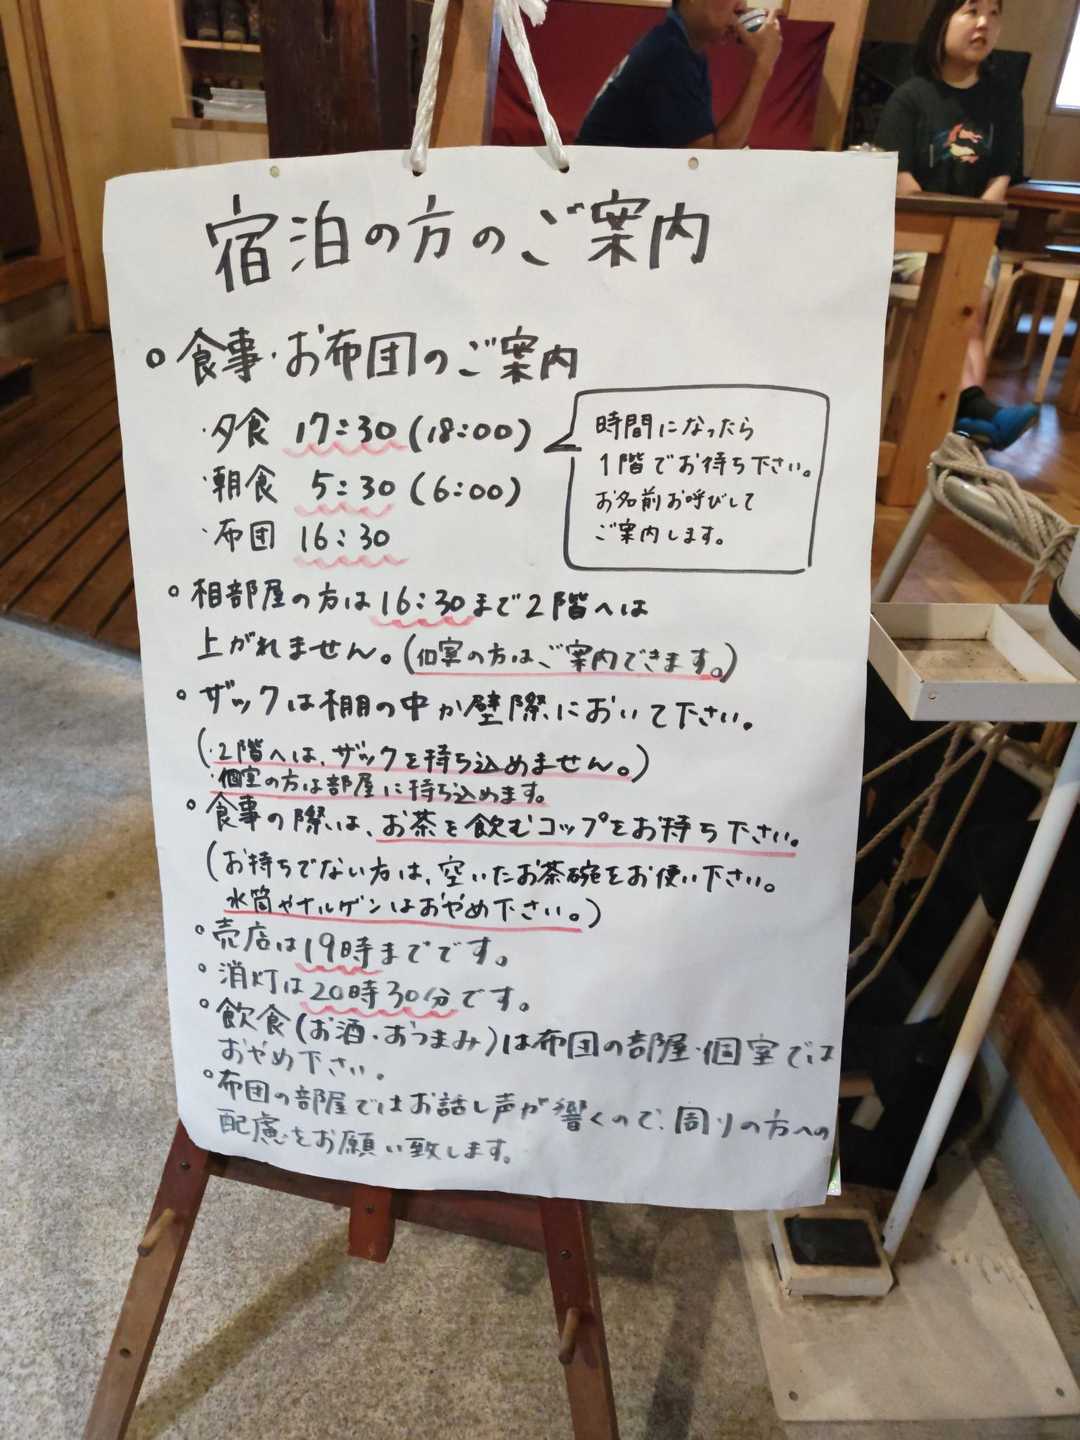 宿泊の方のご案内
○食事・お布団のご案内
・夕食 17:30(18:00)
・朝食 5:30(6:00)
・布団 16:30
時間になったら
1階でお待ち下さい。
お名前お呼びして
ご案内します。
○相部屋の方は16:30まで2階へは
上がれません。(個室の方はご案内できます。)
○ザックは棚の中か壁際において下さい。
(・2階へは、ザックを持ち込めません。)
・個室の方は部屋に持ち込めます。
○食事の際は、お茶を飲むコップをお持ち下さい。
(お持ちでない方は、空いたお茶碗をお使い下さい。
水筒やナルゲンはおやめ下さい。)
○売店は19時までです。
○消灯は20時30分です。
○飲食(お酒・おつまみ)は布団の部屋・個室では
おやめ下さい。
○布団の部屋ではお話し声が響くので、周りの方への
配慮をお願い致します。